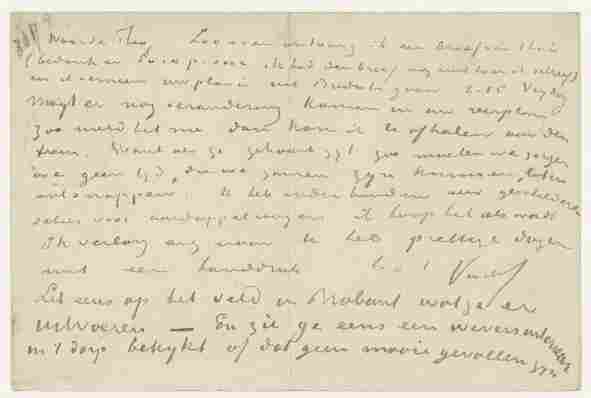 Waarde Theo, Zoo even ontvang ik een brief van thuis
(bedankt er Pa voor ik had den brief nog niet toen ik schreef)
en ik verneem uw plan uit Breda te gaan 2.05 Vrydag
Mogt er nog verandering komen in uw reisplan
zoo meld het me dan kan ik U afhalen van den
trein. Want als ge gehaast zyt zoo moeten we zorgen
we geen tyd, die we zamen zyn kunnen, laten
ontsnappen. Ik heb onder handen een geschilderde
schets voor aardappeleters ik hoop het iets wordt
Ik verlang erg naar U heb prettige dagen
met een handdruk t.à t. Vincent
Let eens op het veld in Brabant wat ze er
uitvoeren — En zie ge eens een wevers
in 't dorp bekykt of dat geen mooie gevallen zyn